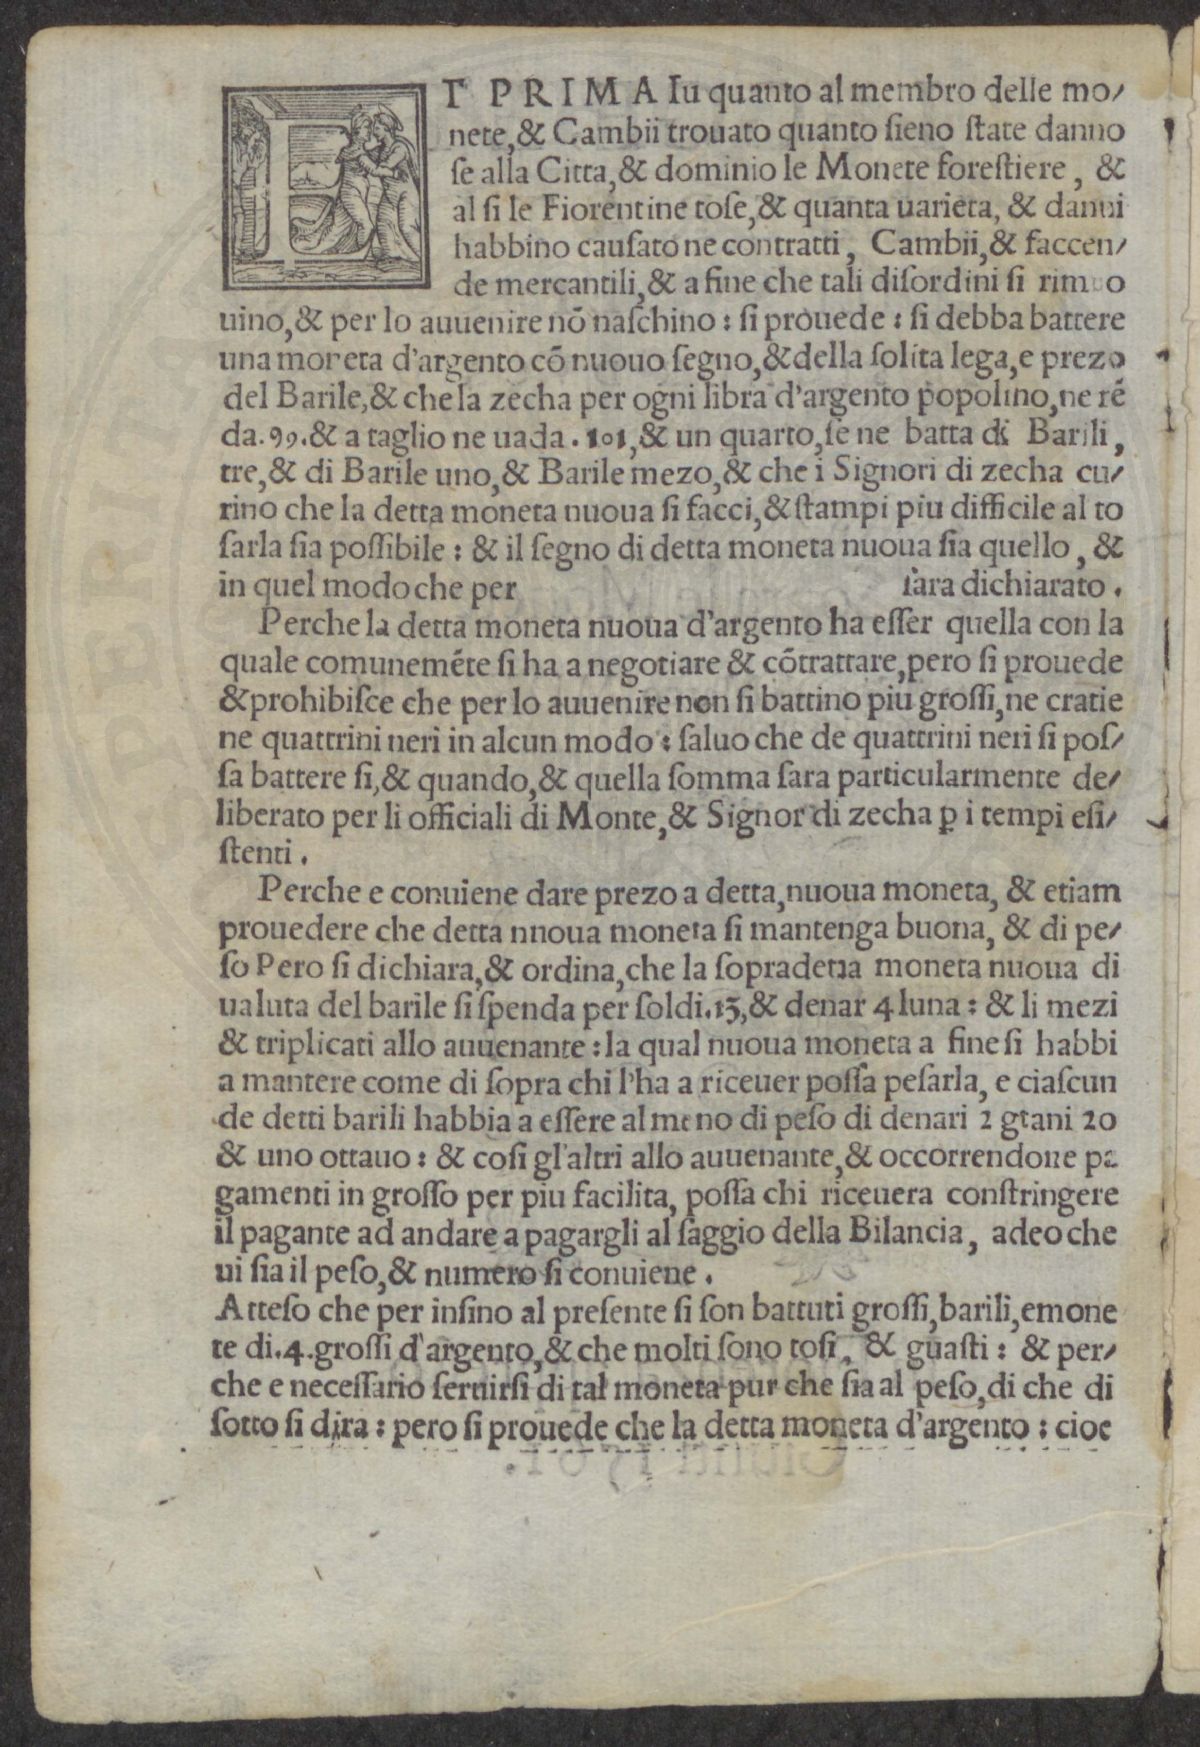 ET PRIMA Iu quanto al membro delle mo/
nete,& Cambii trouato quanto ſieno ſtate danno
ſe alla Citta,& dominio le Monete foreſtiere, &
al ſi le Fiorentine toſe,& quanta uarieta, & danni
habbino cauſato ne contratti, Cambii,& faccen/
de mercantili,& a fine che tali diſordini ſi rimuo
uino,& per lo auuenire nō naſchino : ſi prouede : ſi debba battere
una moneta d'argento cō nuouo ſegno,&della ſolita lega,e prezo
del Barile,& che la zecha per ogni libra d'argento popolino,ne rē
da.99.& a taglio ne uada.101,& un quarto,ſe ne batta di Barili,
tre,& di Barile uno,& Barile mezo,& che i Signori di zecha cu/
rino che la detta moneta nuoua ſi facci,&ſtampi piu difficile al to
ſarla ſia poſſibile : & il ſegno di detta moneta nuoua ſia quello, &
in quel modo che per ſara dichiarato.
Perche la detta moneta nuoua d'argento ha eſſer quella con la
quale comunemēte ſi ha a negotiare & cōtrattare,pero ſi prouede
&prohibiſce che per lo auuenire non ſi battino piu groſſi,ne cratie
ne quattrini neri in alcun modo : ſaluo che de quattrini neri ſi poſ/
ſa battere ſi,& quando,& quella ſomma ſara particularmente de/
liberato per li officiali di Monte,& Signor di zecha ꝑ i tempi eſi/
ſtenti.
Perche e conuiene dare prezo a detta,nuoua moneta, & etiam
prouedere che detta nnoua moneta ſi mantenga buona, & di pe/
ſo Pero ſi dichiara,& ordina,che la ſopradetta moneta nuoua di
ualuta del barile ſi ſpenda per ſoldi.13,& denar 4 luna : & li mezi
& triplicati allo auuenante : la qual nuoua moneta a fine ſi habbi
a mantere come di ſopra chi l'ha a riceuer poſſa peſarla, e ciaſcun
de detti barili habbia a eſſere al meno di peſo di denari 2 gtani 20
& uno ottauo : & coſi gl'altri allo auuenante,& occorrendone pa
gamenti in groſſo per piu facilita, poſſa chi riceuera conſtringere
il pagante ad andare a pagargli al ſaggio della Bilancia, adeo che
ui ſia il peſo,& numero ſi conuiene.
Atteſo che per inſino al preſente ſi ſon battuti groſſi,barili,emone
te di.4.groſſi d'argento,& che molti ſono toſi, & guaſti : & per/
che e neceſſario ſeruirſi di tal moneta pur che ſia al peſo,di che di
ſotto ſi dira : pero ſi prouede che la detta moneta d'argento : cioe